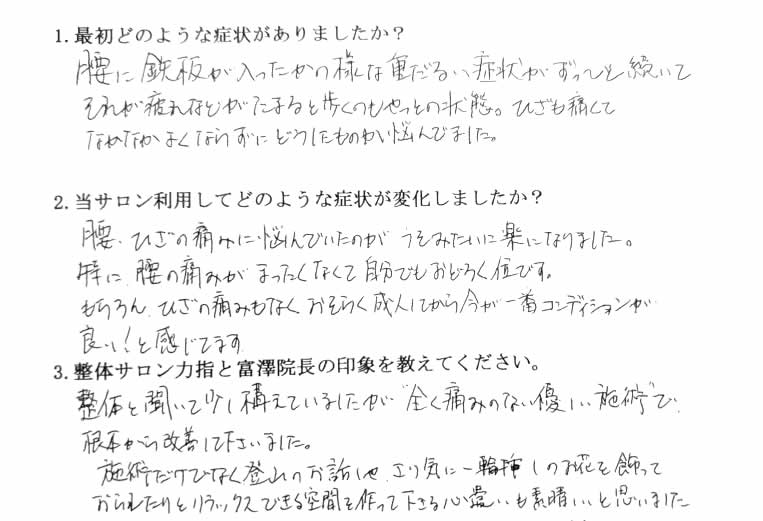 1. 最初どのような症状がありましたか？
腰に鉄板が入ったかの様な重だるい症状がずっと続いて
それが疲れなどがたまると歩くのもやっとの状態。ひざも痛くて
なかなかよくならずにどうしたものかい悩んでました。
2. 当サロン利用してどのような症状が変化しましたか？
腰、ひざの痛みに悩んでいたのがうそみたいに楽になりました。
特に腰の痛みがまったくなくて自分でもおどろく位です。
もちろん、ひざの痛みもなくおそらく成人してから今が一番コンディションが
良い！と感じてます
3. 整体サロン力指と富澤院長の印象を教えてください。
整体と聞いて少し構えていましたが"全く痛みのない優しい施術"で
根本から改善して下さいました。
施術だけでなく登山のお話しや、さり気に一輪挿しのお花を飾って
おられたりとリラックスできる空間を作って下さる心遣いも素晴しいと思いました